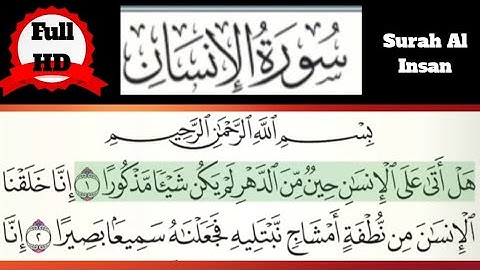 Full
HD
سُورَةُ الإِنسَانِ
Surah Al
Insan
بِسْمِ اللَّهِ الرَّحْمَٰنِ الرَّحِيمِ
هَلْ أَتَىٰ عَلَى الْإِنسَانِ حِينٌ مِّنَ الدَّهْرِ لَمْ يَكُن شَيْئًا مَّذْكُورًا ١ إِنَّا خَلَقْنَا
الْإِنسَانَ مِن نُّطْفَةٍ أَمْشَاجٍ نَّبْتَلِيهِ فَجَعَلْنَاهُ سَمِيعًا بَصِيرًا ٢ إِنَّا